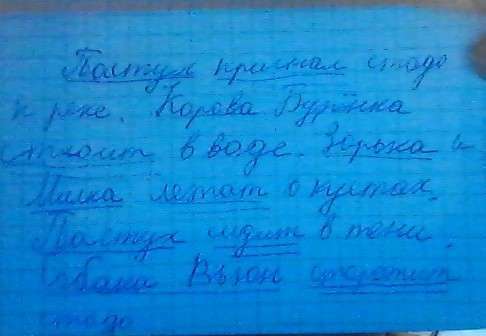 Пастух пригнал стадо
к реке. Корова Бурёнка
стоит в воде. Зорька и
Милка лежат в кустах.
Пастух сидит в тени.
Собака Вьюн сторожит
стадо